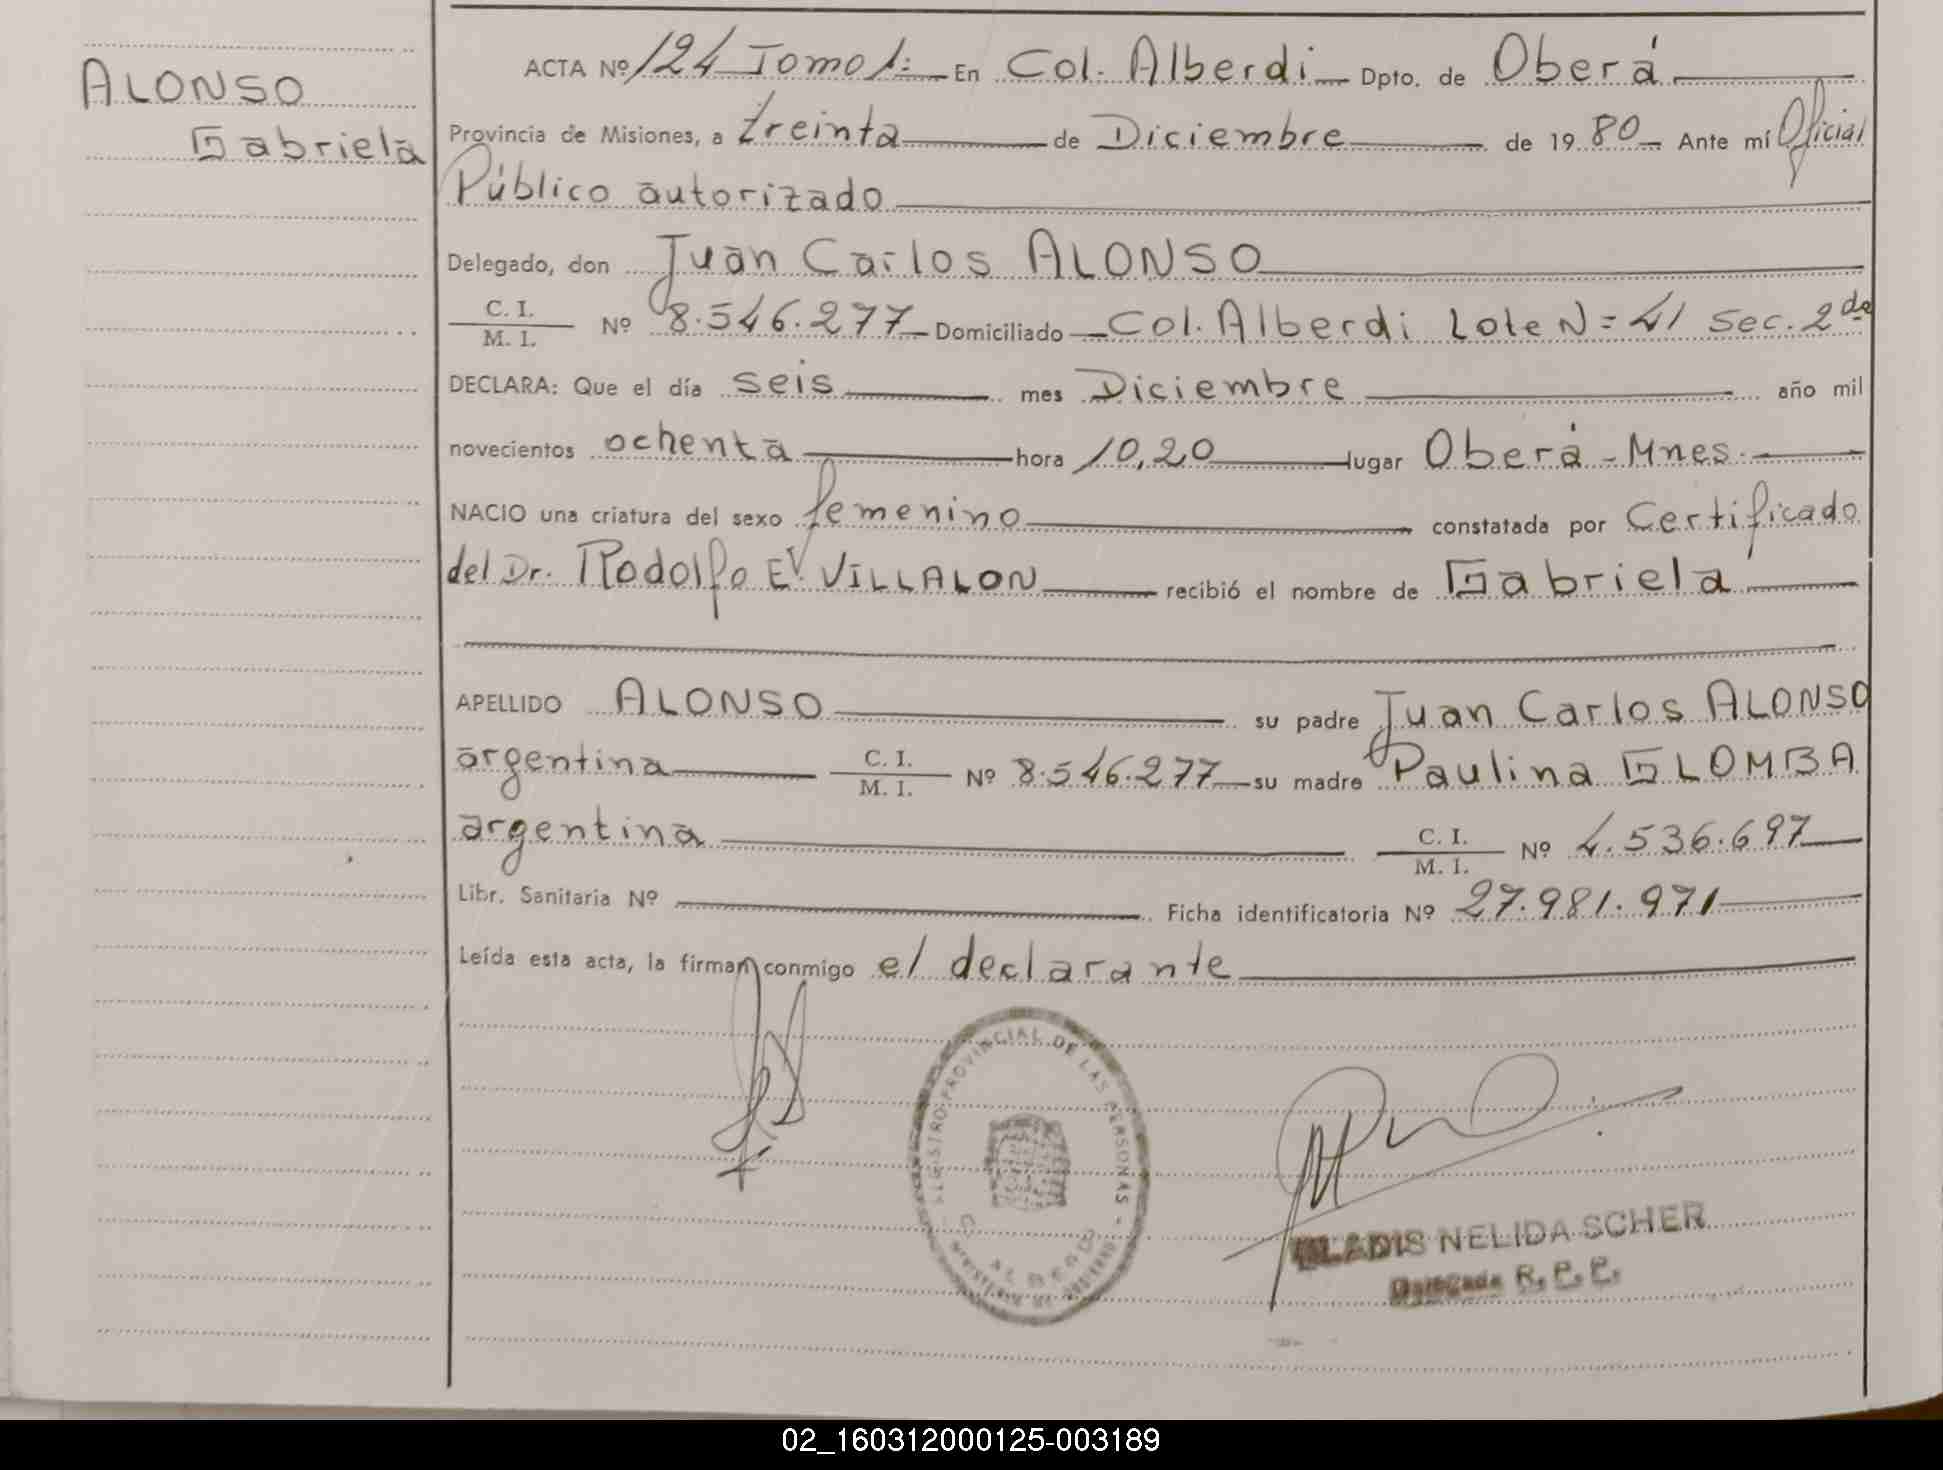 ALONSO
Gabriela
ACTA Nº 124 Tomo 1: En Col. Alberdi Dpto. de Oberá
Provincia de Misiones, a treinta de Diciembre de 19 80 Ante mí Oficial
Público autorizado
Delegado, don Juan Carlos ALONSO
C. I.
M. I. Nº 8.546.277 Domiciliado Col. Alberdi Lote N= 41 Sec. 2da
DECLARA: Que el día seis mes Diciembre año mil
novecientos ochenta hora 10,20 lugar Oberá - Mnes.
NACIO una criatura del sexo femenino constatada por Certificado
del Dr. Rodolfo E. V. VILLALON recibió el nombre de Gabriela
APELLIDO ALONSO su padre Juan Carlos ALONSO
argentina C. I.
M. I. Nº 8.546.277 su madre Paulina GLOMBA
argentina C. I.
M. I. Nº 4.536.697
Libr. Sanitaria Nº Ficha identificatoria Nº 27.981.971
Leída esta acta, la firman conmigo el declarante
REGISTRO PROVINCIAL DE LAS PERSONAS
GLADIS NELIDA SCHER
Delegada R. P. P.
02_160312000125-003189